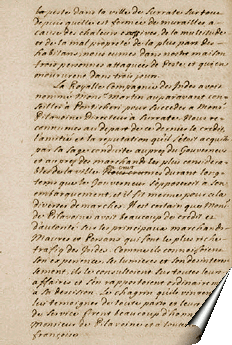 la peste dans la ville de Surate sur tout
depuis qu'elle est fermée de murailles a
cause des chaleurs excessives de la multitude
et de la mal propreté de la plus part des
habitans, nous eumes dans notre maison
trois personnes attaquées de Peste et qui en
moururent dans trois jours.
La Royalle Compagnie des Indes avoit
nommé Mons. Martin auparavant con
seiller à Pontichery pour succeder a Mons.
Pilavoine Directeur à Surate. Nous re
connumes au depart de ce dernier le credit
l'amitié et la reputation qu'il s'étoit acquis
par sa sage conduite aupres du Gouverneur
et aupres des marchands les plus considera
bles de la ville
temps que le Gouverneur s'opposeroit a son
embarquement, et il l'en menaça pour
diverses marches. Il est certain que Mons.
de Pilavoine avoit beaucoup de credit et
d'autorité sur les principaux marchands
Maures et Persans qui font les plus riches
trafics des Indes. Comme ils connoissoient
son experience, ses lumieres et son desinteres
sement, ils le consultoient sur toutes leurs
affaires et s'en rapportoient ordinairement
à sa decision. Le chagrin qu'ils
luy temoignerent de toute parts et leurs
de service firent beaucoup d'honneur
Monsieur de Pilavoine et a toute
françoise.